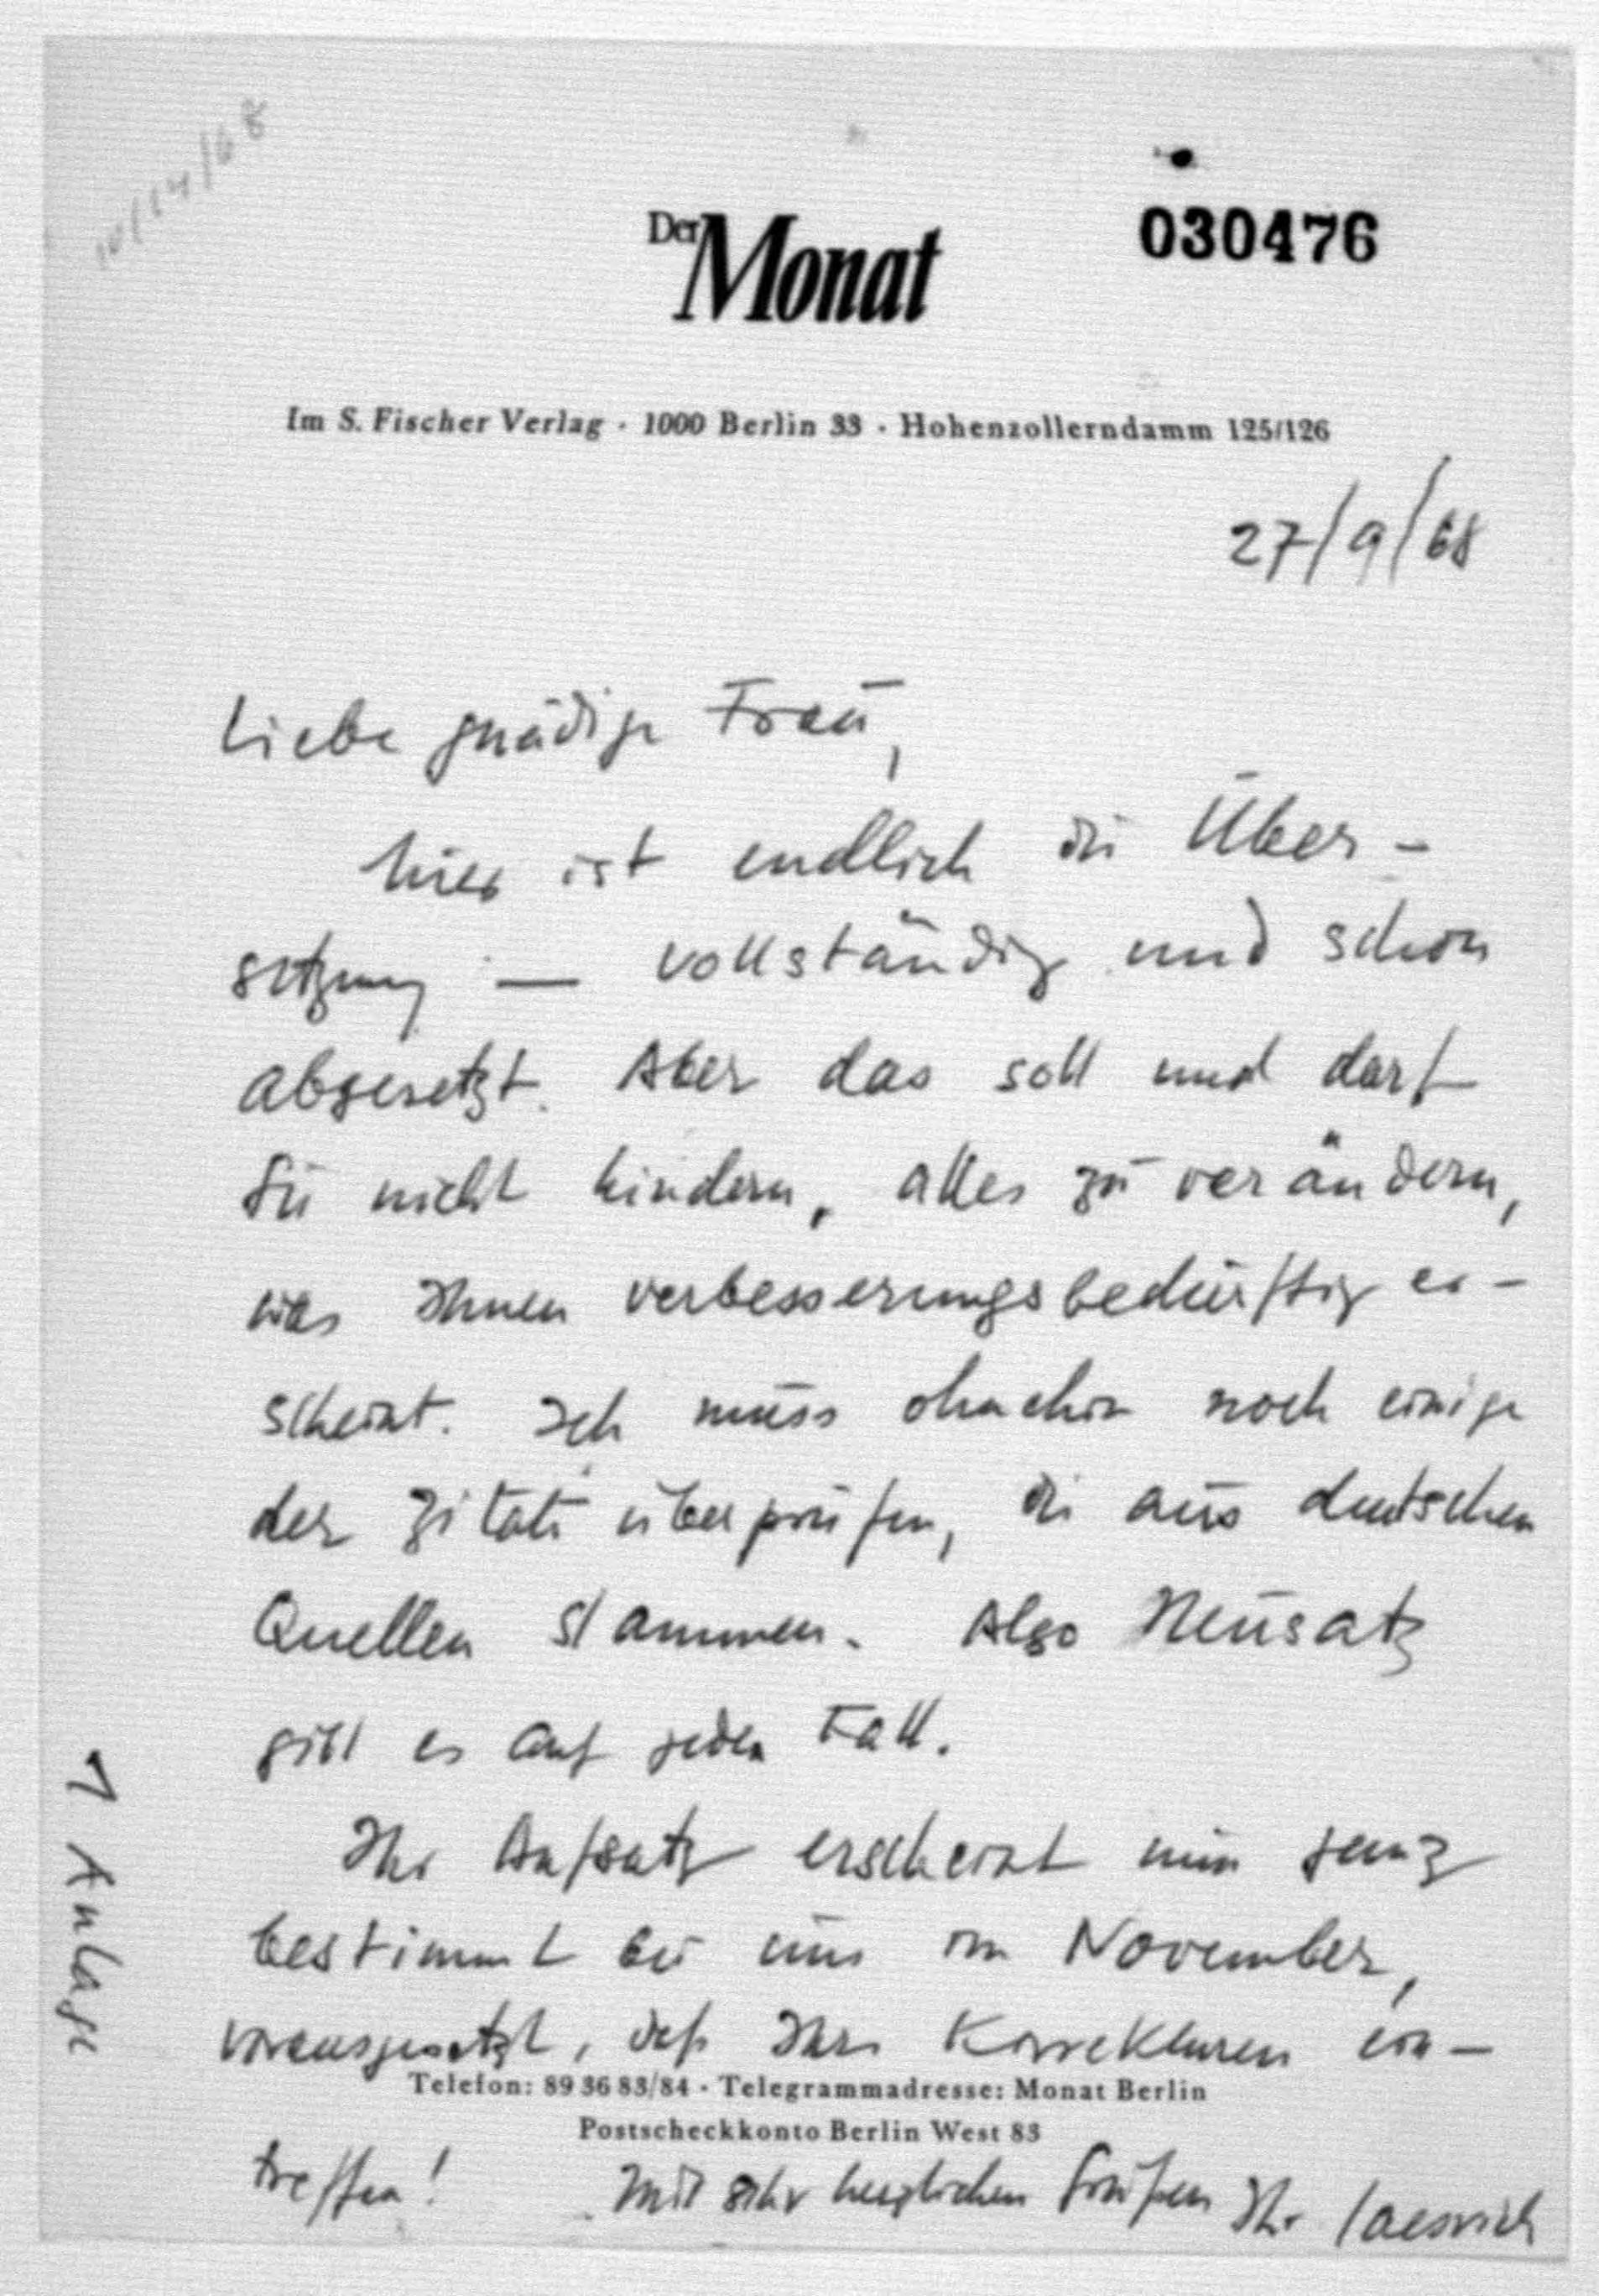 10/14/68
Der Monat
030476
Im S. Fischer Verlag · 1000 Berlin 33 · Hohenzollerndamm 125/126
27/9/68
Liebe gnädige Frau,
hier ist endlich die Über-
setzung — vollständig und schon
abgesetzt. Aber das soll und darf
Sie nicht hindern, alles zu verändern,
was Ihnen verbesserungsbedürftig er-
scheint. Ich muss ohnehin noch einige
der Zitate überprüfen, die aus deutschen
Quellen stammen. Also Neusatz
gibt es auf jeden Fall.
Ihr Aufsatz erscheint nun ganz
bestimmt bei uns im November,
vorausgesetzt, daß Ihre Korrekturen ein-
Telefon: 89 36 83/84 · Telegrammadresse: Monat Berlin
Postscheckkonto Berlin West 83
treffen! Mit sehr herzlichen Grüßen Ihr
1 Anlage